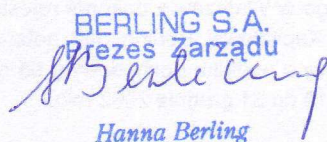 BERLING S.A.
Prezes Zarządu
Hanna Berling